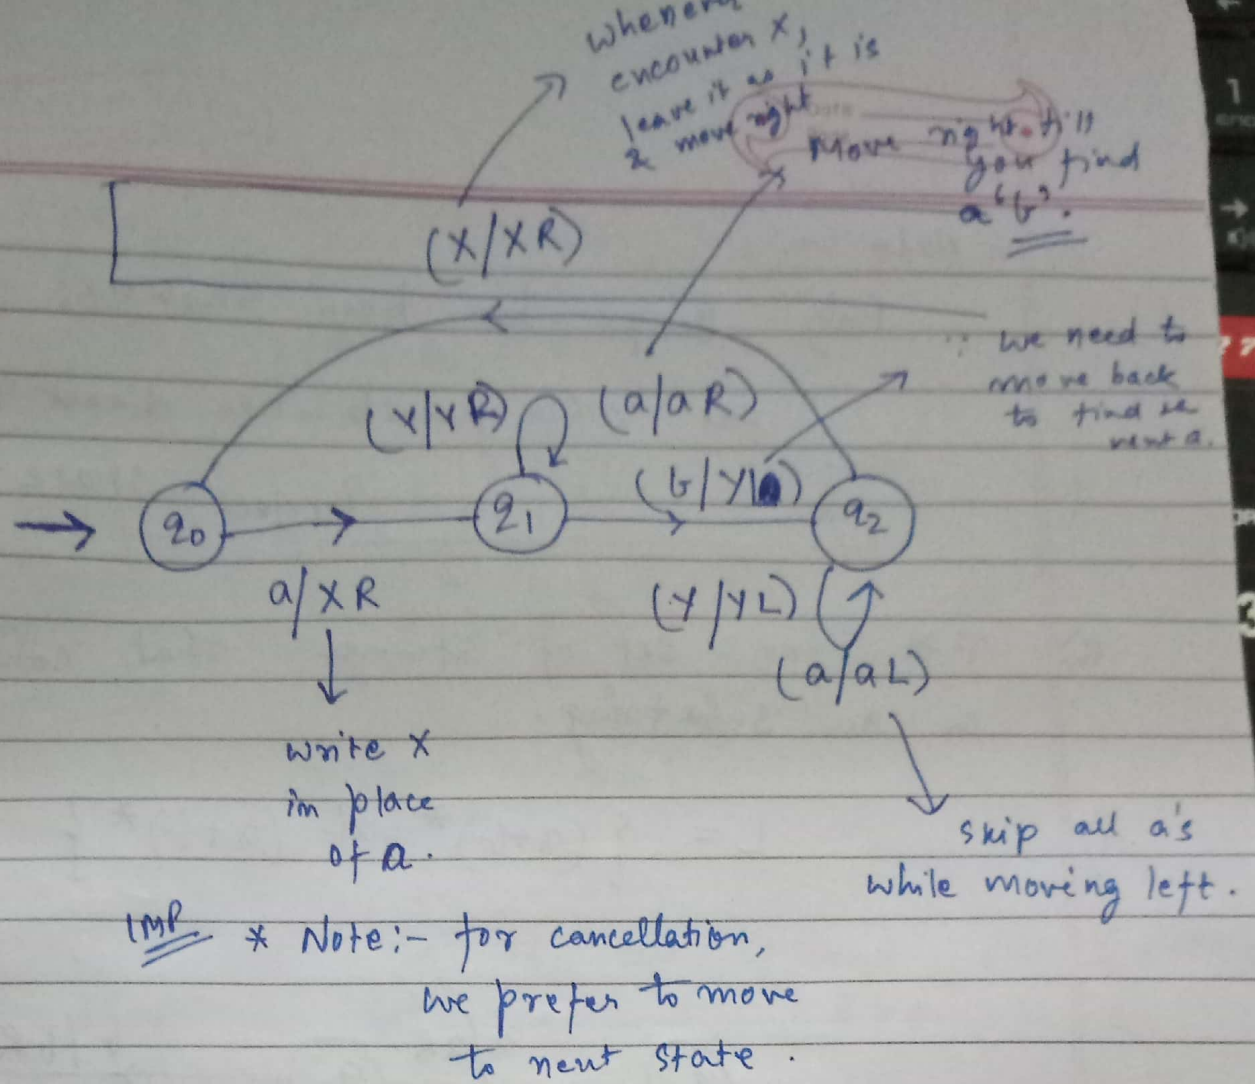 encounter X,
leave it as it is
& move right
Move right till
you find
a 'b'.
(X/XR)
∵ we need to
move back
to find
next a.
(Y/YR) (a/aR)
(b/Y
q0 q1 q2
a/XR
(Y/YL)
(a/aL)
write X
in place
of a.
skip all a's
while moving left.
IMP * Note:- for cancellation,
we prefer to move
to next state.